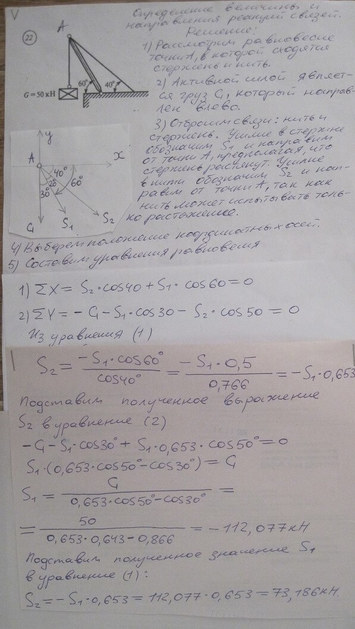 V
Определение величины и
направления реакций связей.
Решение:
22
A
60°
40°
G=50 кН
1) Рассмотрим равновесие
точки A, в которой сходятся
стержень и нить.
2) Активной силой являет-
ся груз G, который направ-
лен вниз.
3) Отбросим связи: нить и
стержень. Усилие в стержне
обозначим S1 и направим
от точки A, предполагая, что
стержень растянут. Усилие
в нити обозначим S2 и нап-
равим от точки A, так как
нить может испытывать толь-
ко растяжение.
y
A
x
40°
60°
30°
G
S1
S2
4) Выберем положение координатных осей.
5) Составим уравнения равновесия
1) ΣX = S2·cos40 + S1·cos60 = 0
2) ΣY = -G - S1·cos30 - S2·cos50 = 0
Из уравнения (1)
S2 = -S1·cos60° / cos40° = -S1·0,5 / 0,766 = -S1·0,653
Подставим полученное выражение
S2 в уравнение (2)
-G - S1·cos30° + S1·0,653·cos50° = 0
S1·(0,653·cos50° - cos30°) = G
S1 = G / 0,653·cos50° - cos30° =
= 50 / 0,653·0,643 - 0,866 = -112,077кН
Подставим полученное значение S1
в уравнение (1):
S2 = -S1·0,653 = 112,077·0,653 = 73,186кН.